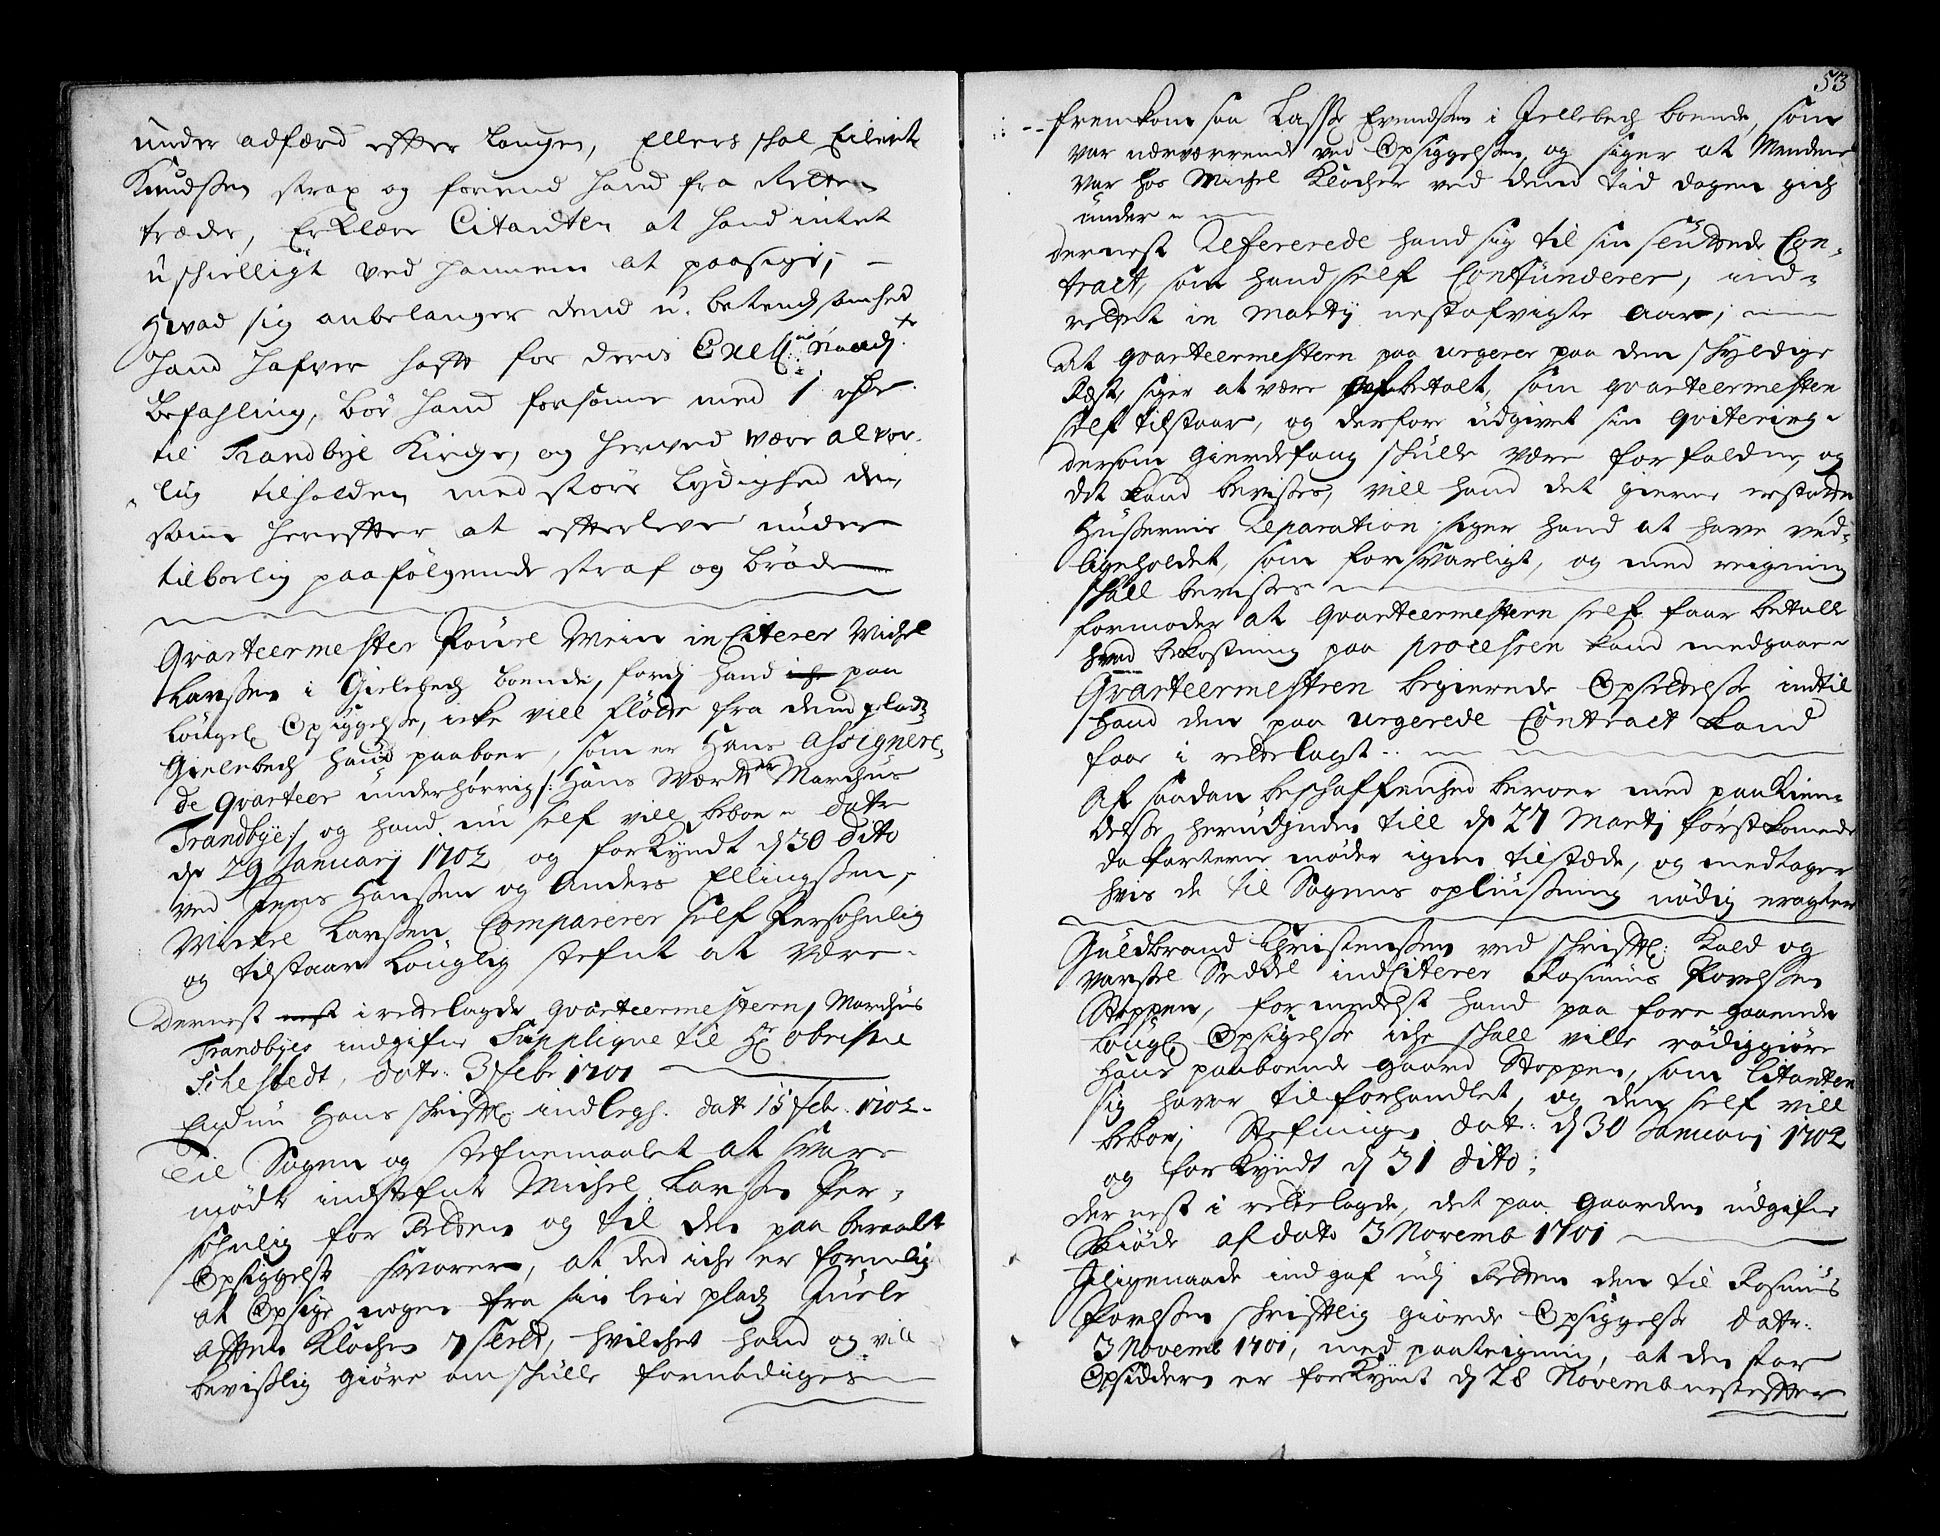 under adfærd efter Lougen, Ellers skal Eilert
Knudssen strax og forend hand fra Retten
træder, Erklære Citanten at hand intet
uskielligt ved hannem at paasige, –
Hvad sig anbelanger dend u-betenchsomhed
hand hafver hafft for deris Excell: Naadz
Befahling, bør hand forsonne med 1 rdr
til Trandbye Kirche, og herved være alvor-
lig tilholden med større Lydighed den
samme herefter at efterleve under
tilbørlig paafølgende straf og brøde
Qvarteermester Pouel Wein inCiterer Michel
Larssen i Gielebech boende, fordj hand paa
Lougl Opsiggelse, icke vill flötte fra dend pladz
Gielebech hand paaboer, som er Hans Assignere-
de Qvarteer underhörrig /: Hans Wært Marchus
Trandbye:/ og hand nu self vill beboe – datr
dn 29 Januarij 1702 og forKyndt d 30 dito
ved Jens Hanssen og Anders Ellingssen,
Michel Larssen Comparerer self Personlig
og tilstaar Louglig stefnt at være.
Dernest i rettelagde qvarteermestern, Marchus
Trandbyes indgifne Supplique til Hr Obriste
Sehestedt, datr: 3 Febr 1701
Endnu Hans skriftl indlegh. dat 15 Feb. 1702.
Til Sagen og stefnemaalet at svare
mødte indstefnte Michel Larssen Per-
sohnlig for Retten og til den paa beraabte
Opsiggelse svarer, at det iche er formelig
at Opsige nogen fra sin leie pladz Juele
afften Klochen 7 slett, hvilchet hand og vill
bevislig giøre om skulle fornødiges
53
fremkom saa Lasse Evendssen i Jellebech boende, som
var nærværrende ved Opsiggelsen, og siger at Mendene
var hos Michel Klochen ved dend tid dagen gich
under –
dernest Refererede hand sig til sin sluttede Con-
tract, som hand self Confunderer, ind-
rettet in Martij nestafvigte Aar;
At qvarteermestern paa urgerer paa den skyldige
Rest, siger at være betalt, som qvarteermesten
self tilstaar, og derfore udgivet sin qvitering
dersom Gierdefang skulle være forfalden, og
det kand bevises, vill hand det gierne erstatte
Hussernis Reparation siger hand at have ved-
ligeholdet, som forsvarligt, og med reigning
skall bevises
formoder at Qvarteermestern self faar betalle
hvad bekostning paa processen kand medgaae
Qvarteermestren begierede Opsettelse indtil
hand den paa urgerede Contract kand
faae i rettelagt
Af saadan beschaffenhed beroer med paakien-
delse herudjnden till d 27 Martj først komede
da Parterne møder igien tilstæde, og medtager
hvis de til Sagens opliusning nødig eragter
Guldbrand Christenssen ved skriftl: Kald og
varsel Seddel indCiterer Rasmus Povelssen
Stoppen, formedelst hand paa foregaaende
Lougl Opsigelse iche skall ville rödiggiöre
Hans paaboende gaard Stoppen, som Citanten
sig haver tilforhandlet, og den self vill
beboe; Stefningen dat: d 30 Januarj 1702
og forKyndt d 31 dito;
dernest i rettelagde, det paa gaarden udgifne
Skiöde af dato 3 Novemb 1701
Jligemaade indgaf udj Retten den til Rasmus
Povelssen skriftlig giorde Opsiggelse datr:
3 Novemb 1701, med paateigning, at den for
Opsidderen er forKyndt d 28 Novemb nestefter